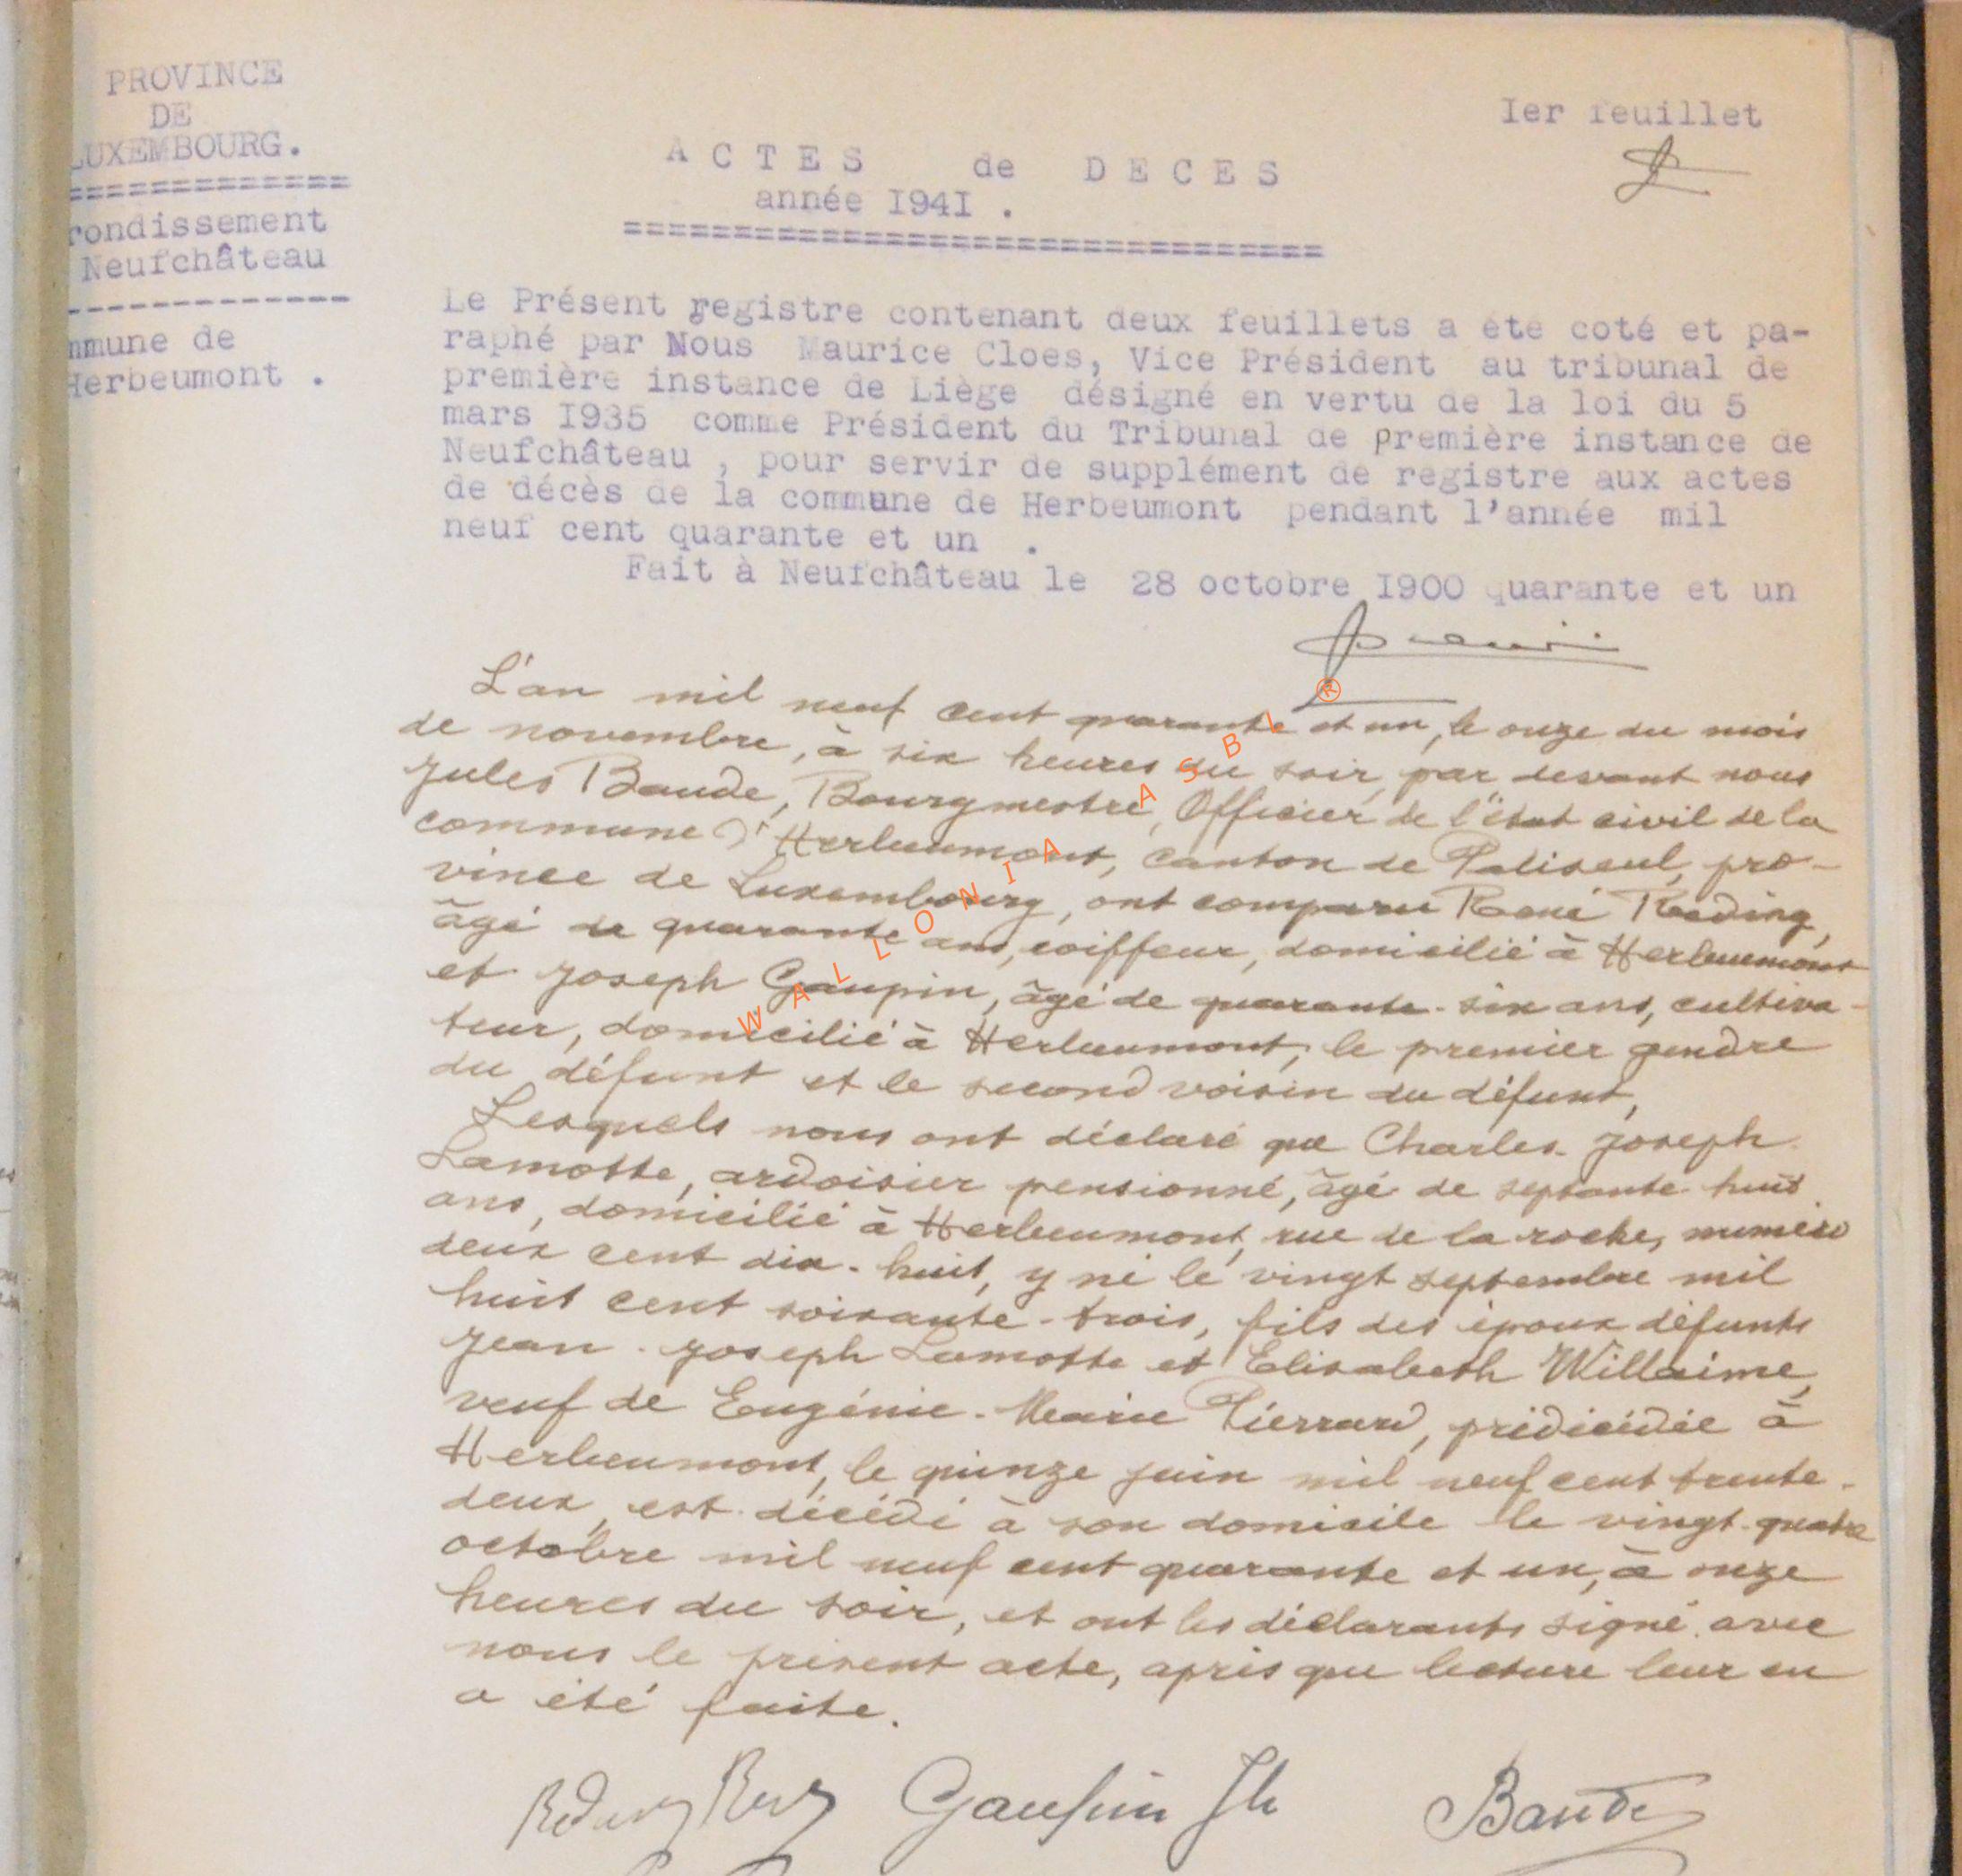 PROVINCE
DE
LUXEMBOURG.
=============
rondissement
Neufchâteau
-------------
mmune de
Herbeumont .
Ier feuillet
ACTES de DECES
année I94I .
================================
Le Présent registre contenant deux feuillets a été coté et pa-
raphé par Nous Maurice Cloes, Vice Président au tribunal de
première instance de Liège désigné en vertu de la loi du 5
mars I935 comme Président du Tribunal de première instance de
Neufchâteau , pour servir de supplément de registre aux actes
de décès de la commune de Herbeumont pendant l'année mil
neuf cent quarante et un .
Fait à Neufchâteau le 28 octobre I900 quarante et un
L'an mil neuf cent quarante et un, le onze du mois
de novembre, à six heures du soir, par devant nous
Jules Baude, Bourgmestre, Officier de l'état civil de la
commune d'Herbeumont, canton de Paliseul, pro-
vince de Luxembourg, ont comparu René Reding,
âgé de quarante ans, coiffeur, domicilié à Herbeumont
et Joseph Gaupin, âgé de quarante-six ans, cultiva-
teur, domicilié à Herbeumont, le premier gendre
du défunt et le second voisin du défunt,
Lesquels nous ont déclaré que Charles-Joseph
Lamotte, ardoisier pensionné, âgé de septante-huit
ans, domicilié à Herbeumont, rue de la roche, numéro
deux cent dix-huit, y né le vingt septembre mil
huit cent soixante-trois, fils des époux défunts
Jean-Joseph Lamotte et Elisabeth Willaime,
veuf de Eugénie-Marie Pierrard, prédécédée à
Herbeumont, le quinze juin mil neuf cent trente-
deux, est décédé à son domicile le vingt-quatre
octobre mil neuf cent quarante et un, à onze
heures du soir, et ont les déclarants signé avec
nous le présent acte, après que lecture leur en
a été faite.
Gaupin Jh Baude
WALLONIA ASBL ®